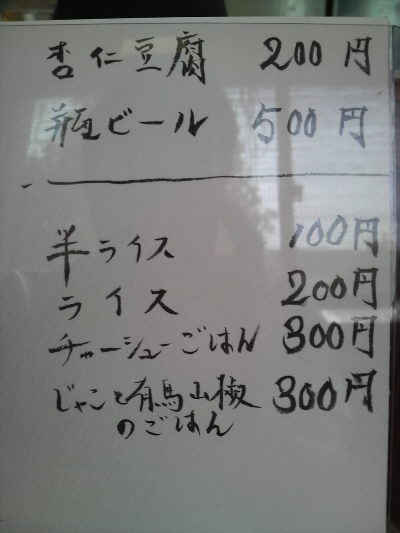 杏仁豆腐 200円
瓶ビール 500円
半ライス 100円
ライス 200円
チャーシューごはん 300円
じゃこと有馬山椒 300円
のごはん